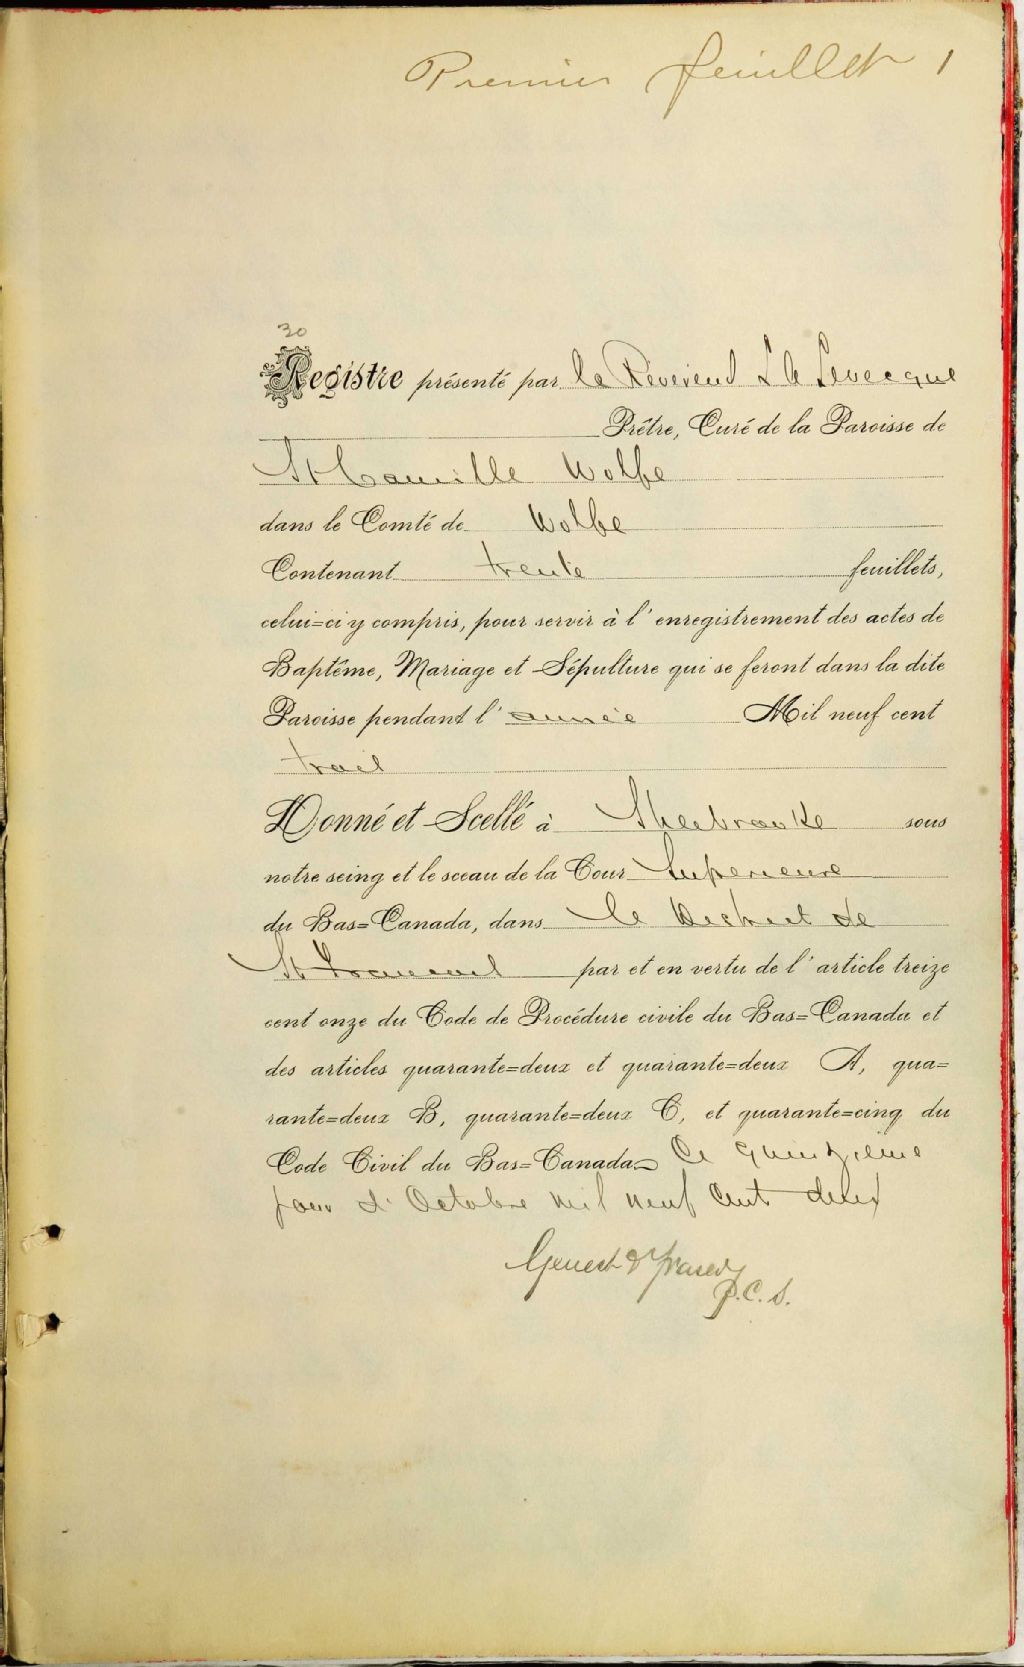 Premier feuillet 1
30
Registre présenté par le Révérend L Levecque
Prêtre, Curé de la Paroisse de
St Camille Wolfe
dans le Comté de Wolfe
Contenant trente feuillets,
celui=ci y compris, pour servir à l'enregistrement des actes de
Baptême, Mariage et Sépulture qui se feront dans la dite
Paroisse pendant l'année Mil neuf cent
trois
Donné et Scellé à Sherbrooke sous
notre seing et le sceau de la Cour Supérieure
du Bas=Canada, dans le District de
St Francois par et en vertu de l'article treize
cent onze du Code de Procédure civile du Bas=Canada et
des articles quarante=deux et quarante=deux A, qua=
rante=deux B, quarante=deux C, et quarante=cinq du
Code Civil du Bas=Canada Ce quinzieme
jour d'Octobre mil neuf Cent deux
Genest &
P.C.S.